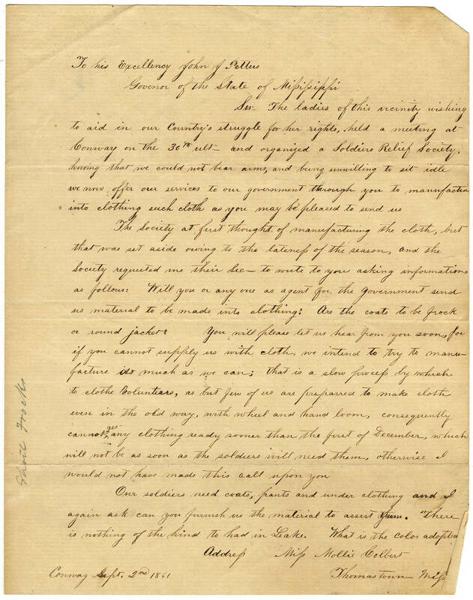 To his Excellency John J Pettus
Govenor of the State of Mississippi
Sir. The ladies of this vicinity wishing
to aid in our Country's struggle for her rights, held a meeting at
Conway on the 30th ult- and organized a Soldiers Relief Society,
knowing that we could not bear arms, and being unwilling to sit idle
we now offer our services to our government through you to manufacture
into clothing such cloth as you may be pleased to send us
The Society at first thought of manufacturing the cloth, but
that was set aside owing to the lateness of the season, and the
Society requested me their Sec- to write to you asking informations
as follows: Will you or any one as agent for the government send
us material to be made into clothing? Are the coats to be frock
or round jacket? You will please let us hear from you soon, for
if you cannot supply us with cloth, we intend to try to manu-
facture as much as we can; that is a slow process by which
to clothe Volunteers, as but few of us are preparred to make cloth
even in the old way, with wheel and hand loom, consequently
cannot get any clothing ready sooner than the first of December, which
will not be as soon as the soldiers will need them, otherwise I
would not have made this call upon you
Our soldiers need coats, pants and under clothing and I
again ask can you furnish us the material to assist them. There
is nothing of the kind to had in Leake. What is the color adopted
Address Miss Mollie Colbert
Conway Sept. 2nd 1861 Thomastown Miss
Frocks